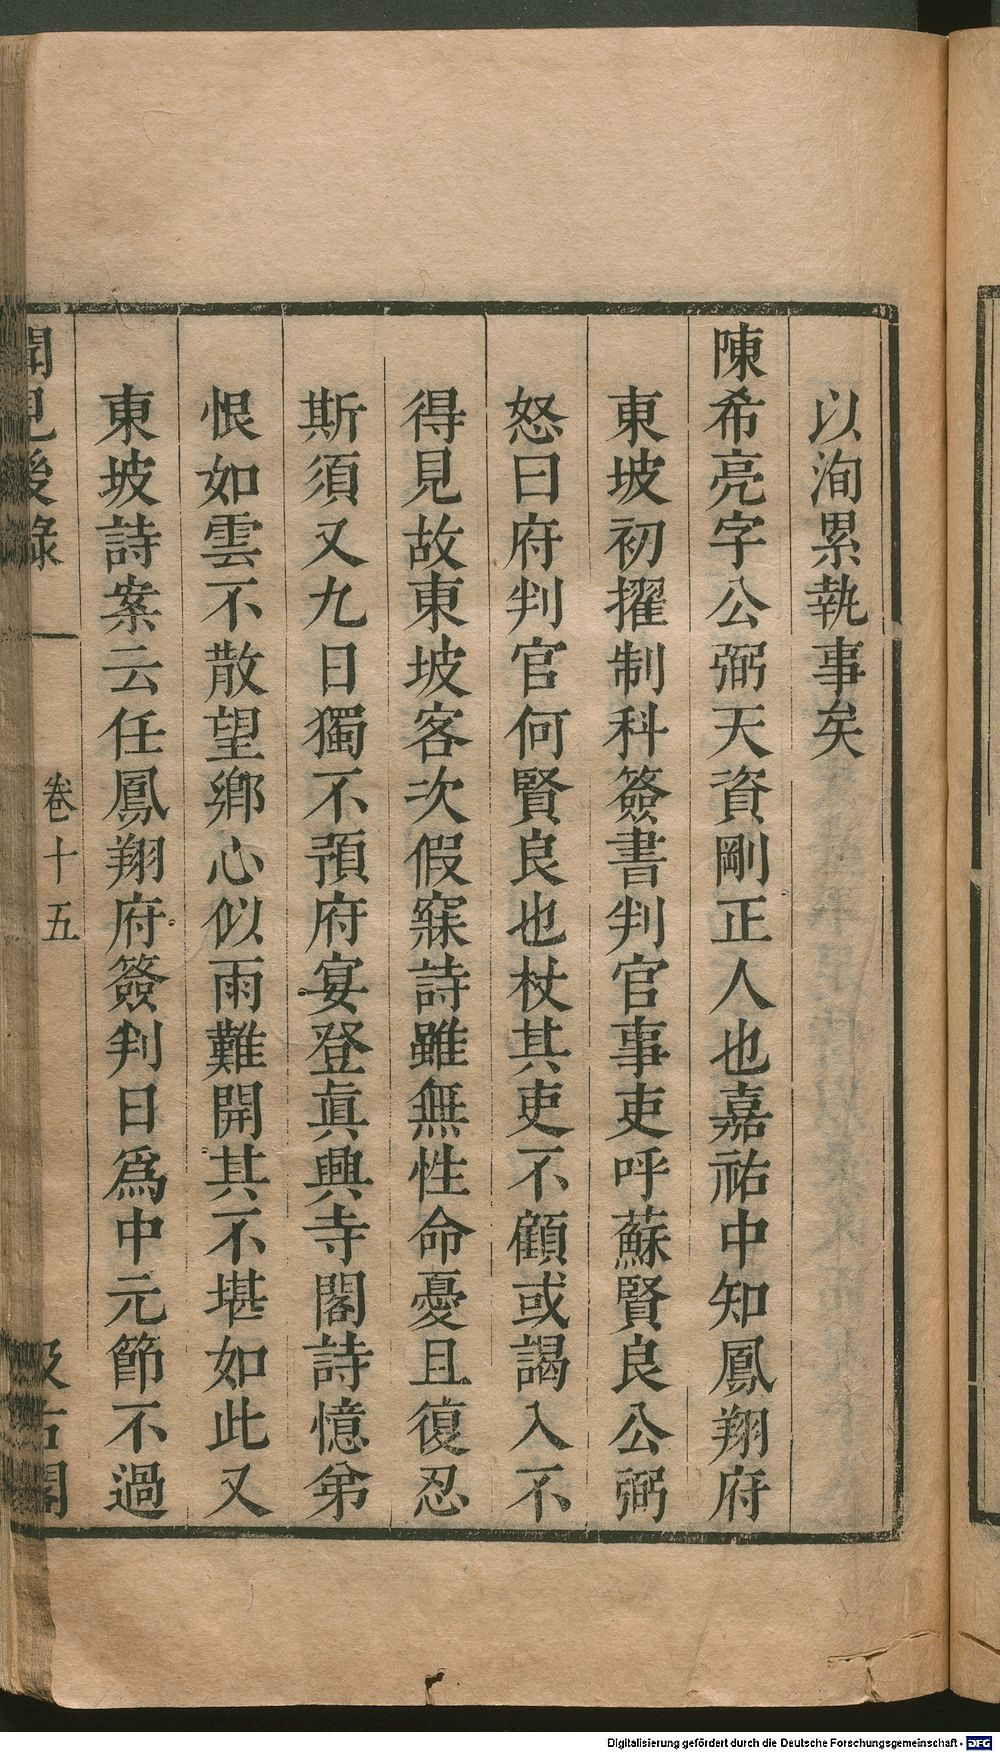 以洵累執事矣
陳希亮字公弼天資剛正人也嘉祐中知鳳翔府
東坡初擢制科簽書判官事吏呼蘇賢良公弼
怒曰府判官何賢良也杖其吏不顧或謁入不
得見故東坡客次假寐詩雖無性命憂且復忍
斯須又九日獨不預府宴登眞興寺閣詩憶弟
恨如雲不散望鄉心似雨難開其不堪如此又
東坡詩案云任鳳翔府簽判日爲中元節不過
聞見後錄
卷十五
汲古閣
Digitalisierung gefördert durch die Deutsche Forschungsgemeinschaft - DFG